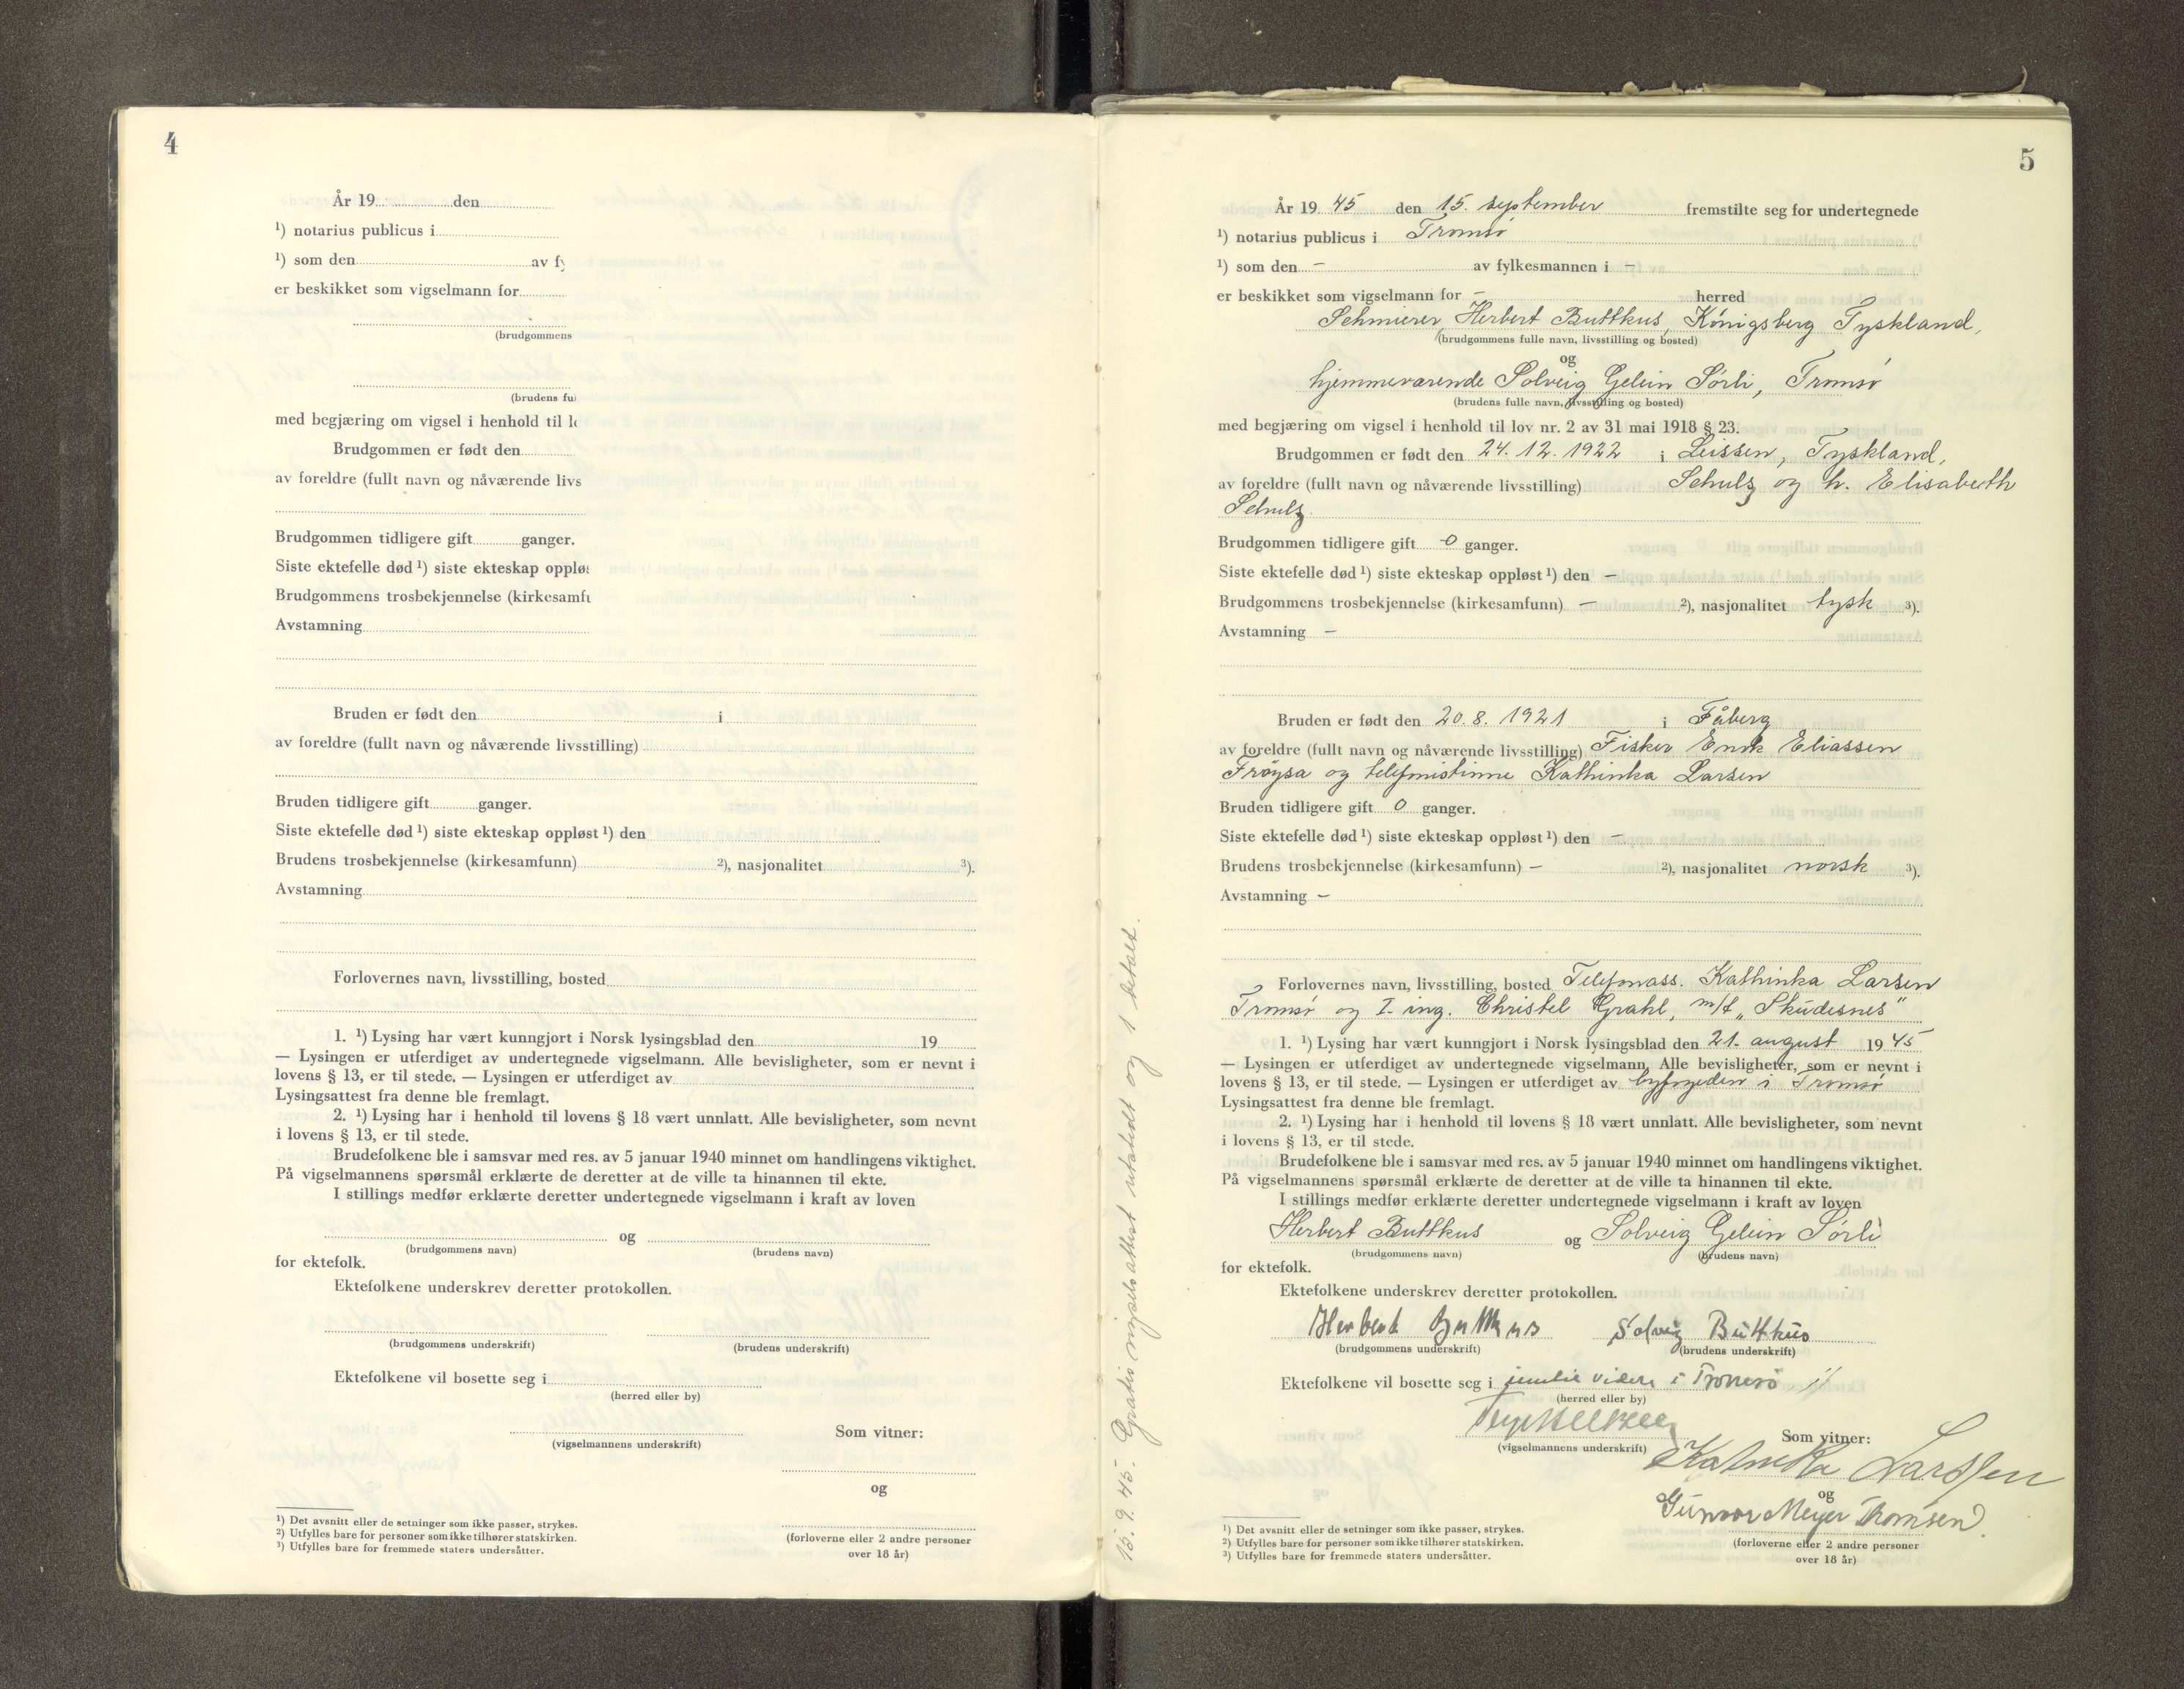 4
År 19 den
¹) notarius publicus i
¹) som den av fy
er beskikket som vigselmann for
(brudgommens
(brudens ful
med begjæring om vigsel i henhold til lo
Brudgommen er født den
av foreldre (fullt navn og nåværende livs
Brudgommen tidligere gift ganger.
Siste ektefelle død ¹) siste ekteskap oppløs
Brudgommens trosbekjennelse (kirkesamfu
Avstamning
Bruden er født den i
av foreldre (fullt navn og nåværende livsstilling)
Bruden tidligere gift ganger.
Siste ektefelle død ¹) siste ekteskap oppløst ¹) den
Brudens trosbekjennelse (kirkesamfunn) ²), nasjonalitet ³).
Avstamning
Forlovernes navn, livsstilling, bosted
1. ¹) Lysing har vært kunngjort i Norsk lysingsblad den 19
— Lysingen er utferdiget av undertegnede vigselmann. Alle bevisligheter, som er nevnt i
lovens § 13, er til stede. — Lysingen er utferdiget av
Lysingsattest fra denne ble fremlagt.
2. ¹) Lysing har i henhold til lovens § 18 vært unnlatt. Alle bevisligheter, som nevnt
i lovens § 13, er til stede.
Brudefolkene ble i samsvar med res. av 5 januar 1940 minnet om handlingens viktighet.
På vigselmannens spørsmål erklærte de deretter at de ville ta hinannen til ekte.
I stillings medfør erklærte deretter undertegnede vigselmann i kraft av loven
og
(brudgommens navn) (brudens navn)
for ektefolk.
Ektefolkene underskrev deretter protokollen.
(brudgommens underskrift) (brudens underskrift)
Ektefolkene vil bosette seg i
(herred eller by)
(vigselmannens underskrift)
Som vitner:
og
(forloverne eller 2 andre personer
over 18 år)
¹) Det avsnitt eller de setninger som ikke passer, strykes.
²) Utfylles bare for personer som ikke tilhører statskirken.
³) Utfylles bare for fremmede staters undersåtter.
15.9.45. Gratis vigselsattest utstedt og 1 betalt.
5
År 19 45 den 15. september fremstilte seg for undertegnede
¹) notarius publicus i Tromsø
¹) som den – av fylkesmannen i –
er beskikket som vigselmann for – herred
Schmierer, Herbert Buttkus, Königsberg Tyskland,
(brudgommens fulle navn, livsstilling og bosted)
og
hjemmeværende Solveig Gelein Sørli, Tromsø
(brudens fulle navn, livsstilling og bosted)
med begjæring om vigsel i henhold til lov nr. 2 av 31 mai 1918 § 23.
Brudgommen er født den 24. 12. 1922 i Leissen, Tyskland,
av foreldre (fullt navn og nåværende livsstilling) Schulz og h. Elisabeth
Schulz.
Brudgommen tidligere gift 0 ganger.
Siste ektefelle død ¹) siste ekteskap oppløst ¹) den –
Brudgommens trosbekjennelse (kirkesamfunn) – ²), nasjonalitet tysk ³).
Avstamning –
Bruden er født den 20. 8. 1921 i Fåberg
av foreldre (fullt navn og nåværende livsstilling) Fisker Enok Eliassen
Frøysa og telefonistinne Kathinka Larsen
Bruden tidligere gift 0 ganger.
Siste ektefelle død ¹) siste ekteskap oppløst ¹) den –
Brudens trosbekjennelse (kirkesamfunn) – ²), nasjonalitet norsk ³).
Avstamning –
Forlovernes navn, livsstilling, bosted Telefonass. Kathinka Larsen
Tromsø og I. ing. Christel Grahl, m/t „Skudesnes"
1. ¹) Lysing har vært kunngjort i Norsk lysingsblad den 21. august 19 45
— Lysingen er utferdiget av undertegnede vigselmann, Alle bevisligheter, som er nevnt i
lovens § 13, er til stede. — Lysingen er utferdiget av byfogden i Tromsø
Lysingsattest fra denne ble fremlagt.
2. ¹) Lysing har i henhold til lovens § 18 vært unnlatt. Alle bevisligheter, som nevnt
i lovens § 13, er til stede.
Brudefolkene ble i samsvar med res. av 5 januar 1940 minnet om handlingens viktighet.
På vigselmannens spørsmål erklærte de deretter at de ville ta hinannen til ekte.
I stillings medfør erklærte deretter undertegnede vigselmann i kraft av loven
Herbert Buttkus og Solveig Gelein Sørli
(brudgommens navn) (brudens navn)
for ektefolk.
Ektefolkene underskrev deretter protokollen.
Herbert Buttkus Solveig Buttkus
(brudgommens underskrift) (brudens underskrift)
Ektefolkene vil bosette seg i inntil videre i Tromsø
(herred eller by)
(vigselmannens underskrift)
Som vitner:
Kathinka Larssen
og
Gunvor Meyer Thomsen.
(forloverne eller 2 andre personer
over 18 år)
¹) Det avsnitt eller de setninger som ikke passer, strykes.
²) Utfylles bare for personer som ikke tilhører statskirken.
³) Utfylles bare for fremmede staters undersåtter.